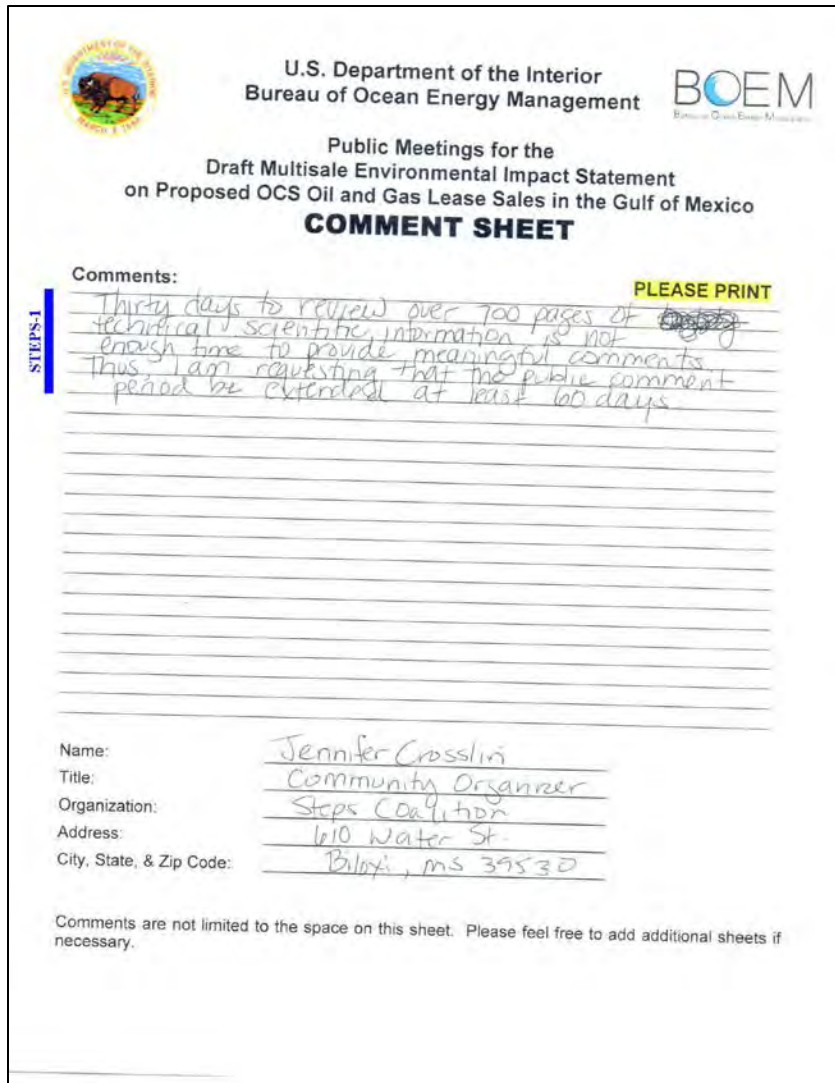 U.S. DEPARTMENT OF THE INTERIOR
MARCH 3, 1849
U.S. Department of the Interior
Bureau of Ocean Energy Management
BOEM
Bureau of Ocean Energy Management
Public Meetings for the
Draft Multisale Environmental Impact Statement
on Proposed OCS Oil and Gas Lease Sales in the Gulf of Mexico
COMMENT SHEET
Comments:
PLEASE PRINT
STEPS-1
Thirty days to review over 700 pages of
technical scientific information is not
enough time to provide meaningful comments.
Thus, I am requesting that the public comment
period be extended at least 60 days
Name: Jennifer Crosslin
Title: Community Organizer
Organization: Steps Coalition
Address: 610 Water St.
City, State, & Zip Code: Biloxi, MS 39530
Comments are not limited to the space on this sheet. Please feel free to add additional sheets if
necessary.